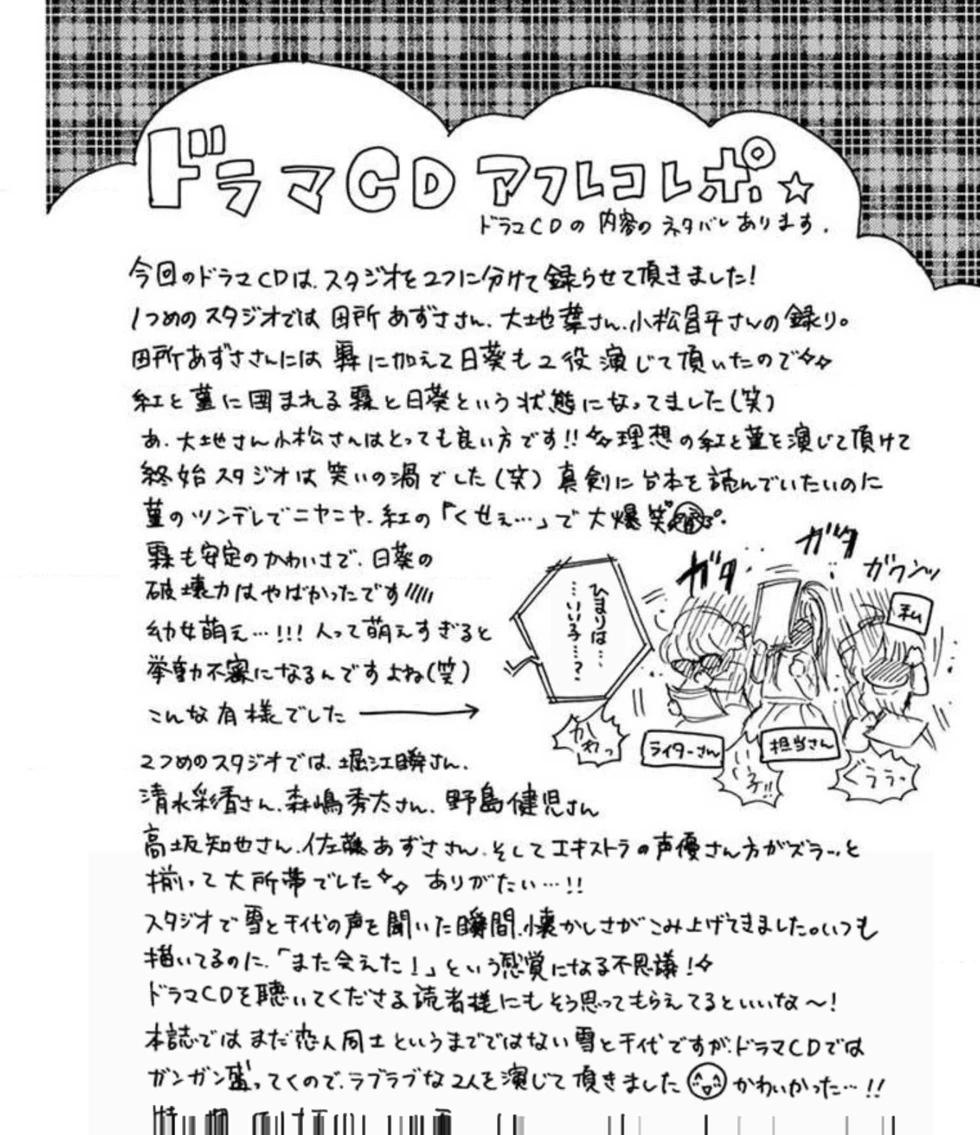 ドラマCD アフレコレポ☆
ドラマCDの内容のネタバレあります.
今回のドラマCDは、スタジオを2つに分けて録らせて頂きました!
1つめのスタジオでは 田所あずささん、大地葉さん、小松昌平さんの録り。
田所あずささんには 霖に加えて日葵も2役演じて頂いたので✧✧
紅と菫に囲まれる霖と日葵という状態になってました(笑)
あ、大地さん小松さんはとっても良い方です!!✧✧理想の紅と菫を演じて頂けて
終始スタジオは笑いの渦でした(笑) 真剣に台本を読んでいたいのに
菫のツンデレでニヤニヤ、紅の「くせぇ…」で大爆笑
霖も安定のかわいさで、日葵の
破壊力はやばかったです/////
幼女萌え…!!! 人って萌えすぎると
挙動不審になるんですよね(笑)
こんな有様でした →
ひまりは…
…いい子…?
ガタ
ガタ
ガウンッ
私
かわっ
ライターさん
担当さん
いい子!!
2つめのスタジオでは、堀江瞬さん、
清水彩香さん、森嶋秀太さん、野島健児さん
高坂知也さん、佐藤あずささん、そしてエキストラの声優さん方がズラーッと
揃って大所帯でした✧✧ ありがたい…!!
スタジオで雪と千代の声を聞いた瞬間、懐かしさがこみ上げてきました。いつも
描いてるのに、「また会えた!」という感覚になる不思議!✧
ドラマCDを聴いてくださる読者様にもそう思ってもらえてるといいな〜!
本誌ではまだ恋人同士というまでではない雪と千代ですが、ドラマCDでは
ガンガン盛ってくので、ラブラブな2人を演じて頂きました かわいかった…!!